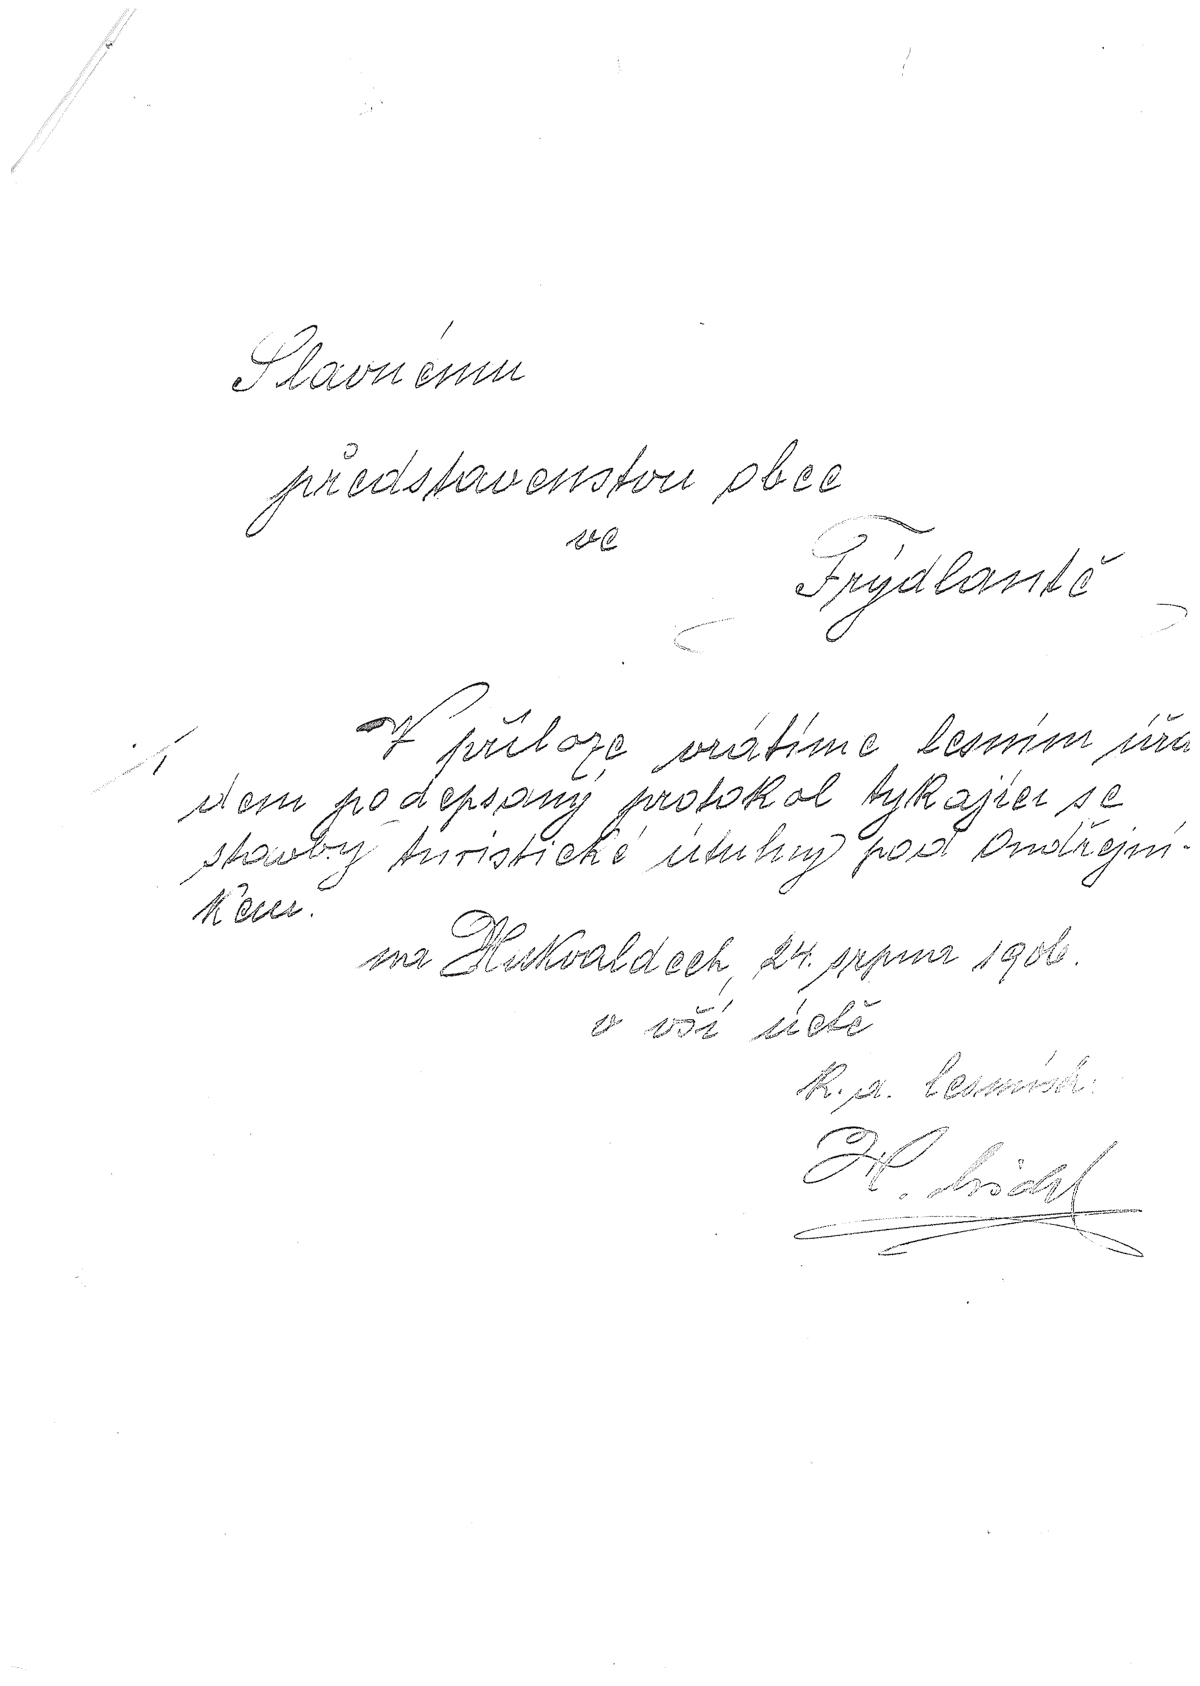 Slavnému
představenstvu obce
ve
Frýdlantě
V příloze vrátíme lesním úřa
dem podepsaný protokol tykající se
stavby turistické útulny pod Ondřejní-
kem.
na Hukvaldech, 24. srpna 1906.
v vší úctě
k. a. lesmistr.